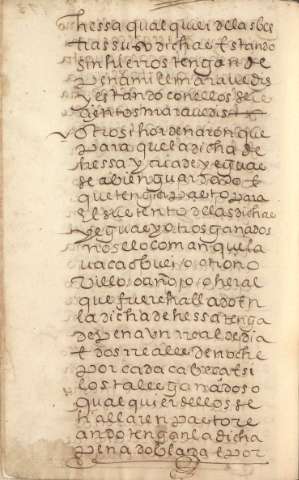 hessa qualquier de las bes
tias susodichas Estando
sin hierros tengan de
pena mill maravedis
y estando con ellos seis
çientos maravedis
otrosi hordenaron que
para que la dicha de
hessa y criade yeguas
se a bien guardado E
que tenga pasto para
el sustento de las dichas
yeguas y otros ganados
no se lo coman que la
vaca o buei o o no
villo o añojo o heral
que fuere hallado En
la dicha dehessa tenga
de pena Un rreal de dia
E dos rreales de noche
por cada cabeza E si
los tales ganados o
qualquier dellos se
hallaren pastore
ando tengan la dicha
pena doblada E por